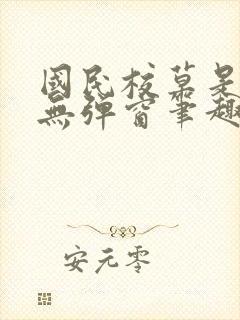 國民校草是
無彈窗筆趣
安元零